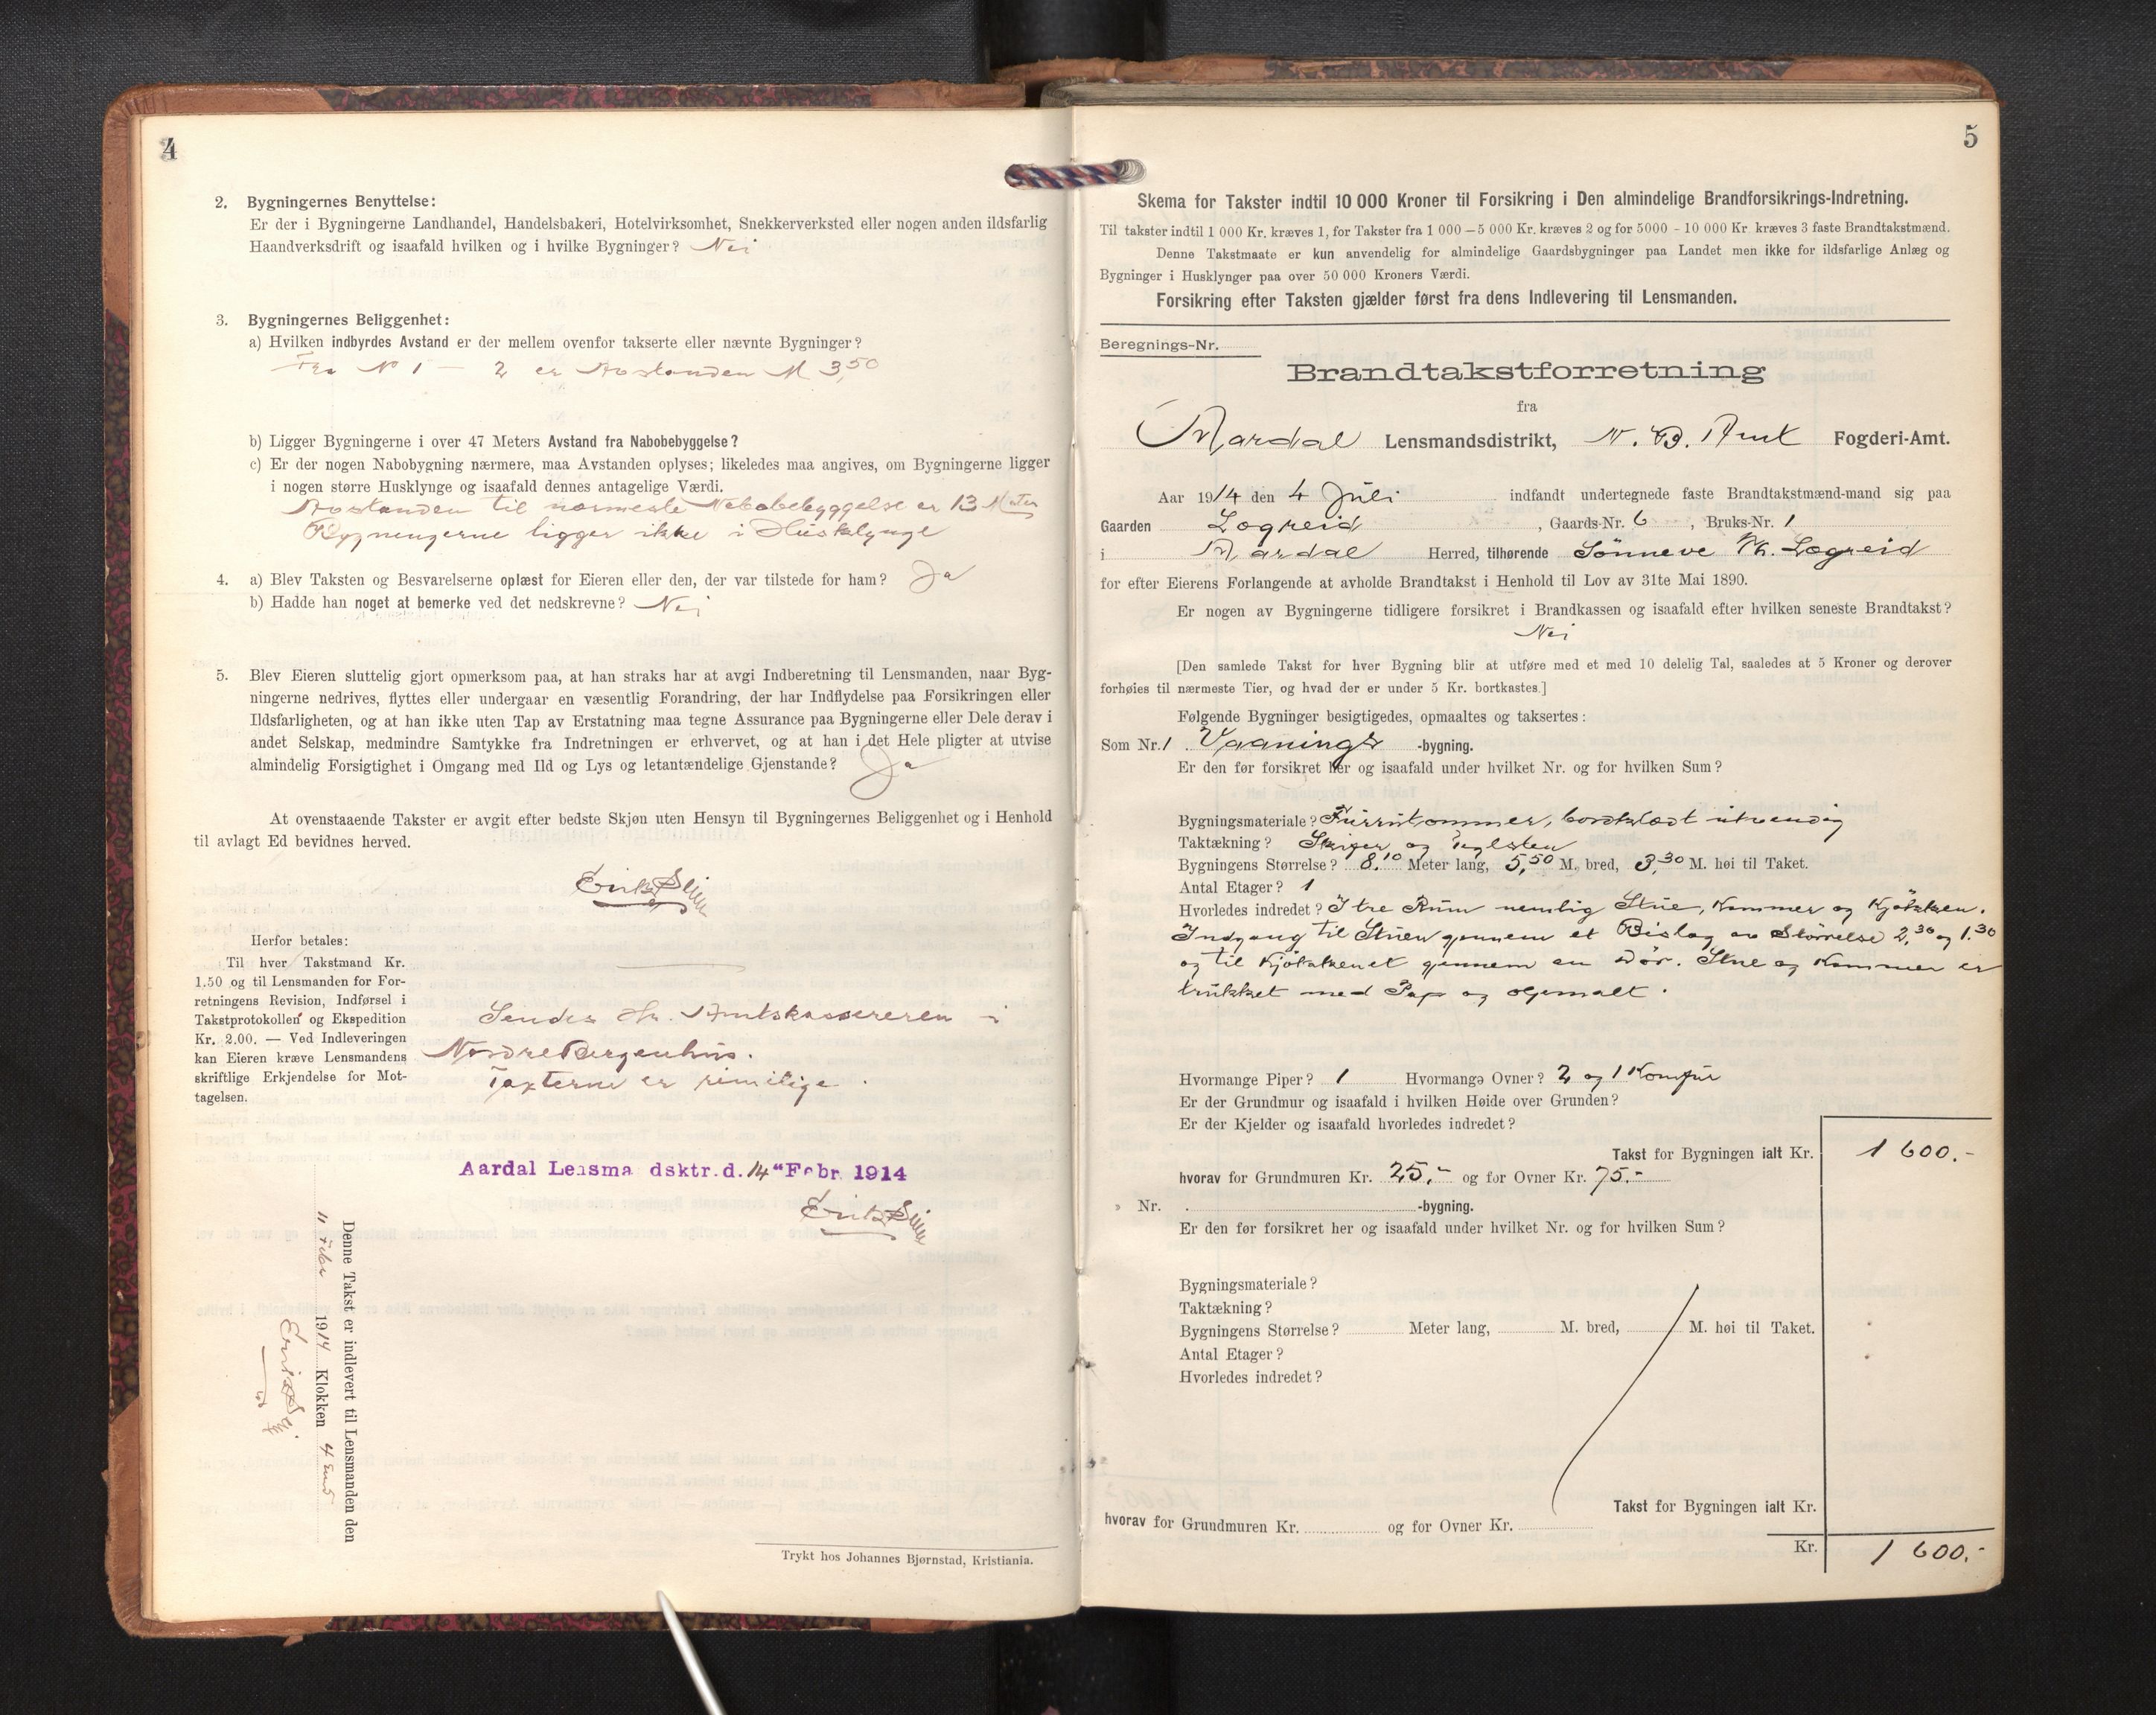 4
2. Bygningernes Benyttelse:
Er der i Bygningerne Landhandel, Handelsbakeri, Hotelvirksomhet, Snekkerverksted eller nogen anden ildsfarlig
Haandverksdrift og isaafald hvilken og i hvilke Bygninger? Nei
3. Bygningernes Beliggenhet:
a) Hvilken indbyrdes Avstand er der mellem ovenfor takserte eller nævnte Bygninger?
Fra No 1 — 2 er Avstanden M 3,50
b) Ligger Bygningerne i over 47 Meters Avstand fra Nabobebyggelse?
c) Er der nogen Nabobygning nærmere, maa Avstanden oplyses; likeledes maa angives, om Bygningerne ligger
i nogen større Husklynge og isaafald dennes antagelige Værdi.
Avstanden til nærmeste Nabobebyggelse er 13 Meter
Bygningerne ligger ikke i Husklynge
4. a) Blev Taksten og Besvarelserne oplæst for Eieren eller den, der var tilstede for ham? Ja
b) Hadde han noget at bemerke ved det nedskrevne? Nei
5. Blev Eieren sluttelig gjort opmerksom paa, at han straks har at avgi Indberetning til Lensmanden, naar Byg-
ningerne nedrives, flyttes eller undergaar en væsentlig Forandring, der har Indflydelse paa Forsikringen eller
Ildsfarligheten, og at han ikke uten Tap av Erstatning maa tegne Assurance paa Bygningerne eller Dele derav i
andet Selskap, medmindre Samtykke fra Indretningen er erhvervet, og at han i det Hele pligter at utvise
almindelig Forsigtighet i Omgang med Ild og Lys og letantændelige Gjenstande? Ja
At ovenstaaende Takster er avgit efter bedste Skjøn uten Hensyn til Bygningernes Beliggenhet og i Henhold
til avlagt Ed bevidnes herved.
Herfor betales:
Til hver Takstmand Kr.
1.50 og til Lensmanden for For-
retningens Revision, Indførsel i
Takstprotokollen og Ekspedition
Kr. 2.00. — Ved Indleveringen
kan Eieren kræve Lensmandens
skriftlige Erkjendelse for Mot-
tagelsen.
Sendes Hr. Amtskassereren i
Nordre Bergenhus.
Taxterne er rimelige.
Aardal Lensma dsktr. d. 14 " Febr. 1914
Denne Takst er indlevert til Lensmanden den
11 Febr 1914 Klokken 4 Emd
Trykt hos Johannes Bjørnstad, Kristiania.
5
Skema for Takster indtil 10 000 Kroner til Forsikring i Den almindelige Brandforsikrings-Indretning.
Til takster indtil 1 000 Kr. kræves 1, for Takster fra 1 000 — 5 000 Kr. kræves 2 og for 5000 - 10 000 Kr. kræves 3 faste Brandtakstmænd.
Denne Takstmaate er kun anvendelig for almindelige Gaardsbygninger paa Landet men ikke for ildsfarlige Anlæg og
Bygninger i Husklynger paa over 50 000 Kroners Værdi.
Forsikring efter Taksten gjælder først fra dens Indlevering til Lensmanden.
Beregnings-Nr.
Brandtakstforretning
fra
Aardal Lensmandsdistrikt, N. B. Amt Fogderi-Amt.
Aar 1914 den 4 Juli indfandt undertegnede faste Brandtakstmænd-mand sig paa
Gaarden Lægreid, Gaards-Nr. 6, Bruks-Nr. 1
i Aardal Herred, tilhørende Sönneve Lægreid
for efter Eierens Forlangende at avholde Brandtakst i Henhold til Lov av 31te Mai 1890.
Er nogen av Bygningerne tidligere forsikret i Brandkassen og isaafald efter hvilken seneste Brandtakst?
Nei
[Den samlede Takst for hver Bygning blir at utføre med et med 10 delelig Tal, saaledes at 5 Kroner og derover
forhøies til nærmeste Tier, og hvad der er under 5 Kr. bortkastes.]
Følgende Bygninger besigtigedes, opmaaltes og taksertes:
Som Nr. 1. Vaanings -bygning.
Er den før forsikret her og isaafald under hvilket Nr. og for hvilken Sum?
Bygningsmateriale? Furrutommer, bordklædt utvendig
Taktækning? Skifer og Teglsten
Bygningens Størrelse? 8,10 Meter lang, 5,50 M. bred, 3,30 M. høi til Taket.
Antal Etager? 1
Hvorledes indredet? I tre Rum nemlig Stue, Kammer og Kjökken.
Indgang til Stuen gennem et Bislag av Störrelse 2,30 og 1,30
og til Kjökkenet gennem en Dör. Stue og Kammer er
trukket med Pap og oljemalt.
Hvormange Piper? 1 Hvormange Ovner? 2 og 1 Komfur
Er der Grundmur og isaafald i hvilken Høide over Grunden?
Er der Kjelder og isaafald hvorledes indredet?
Takst for Bygningen ialt Kr. 1 600.-
hvorav for Grundmuren Kr. 25.- og for Ovner Kr. 75.-
Nr. -bygning.
Er den før forsikret her og isaafald under hvilket Nr. og for hvilken Sum?
Bygningsmateriale?
Taktækning?
Bygningens Størrelse? Meter lang, M. bred, M. høi til Taket.
Antal Etager?
Hvorledes indredet?
Takst for Bygningen ialt Kr.
hvorav for Grundmuren Kr. og for Ovner Kr.
Kr. 1 600.-